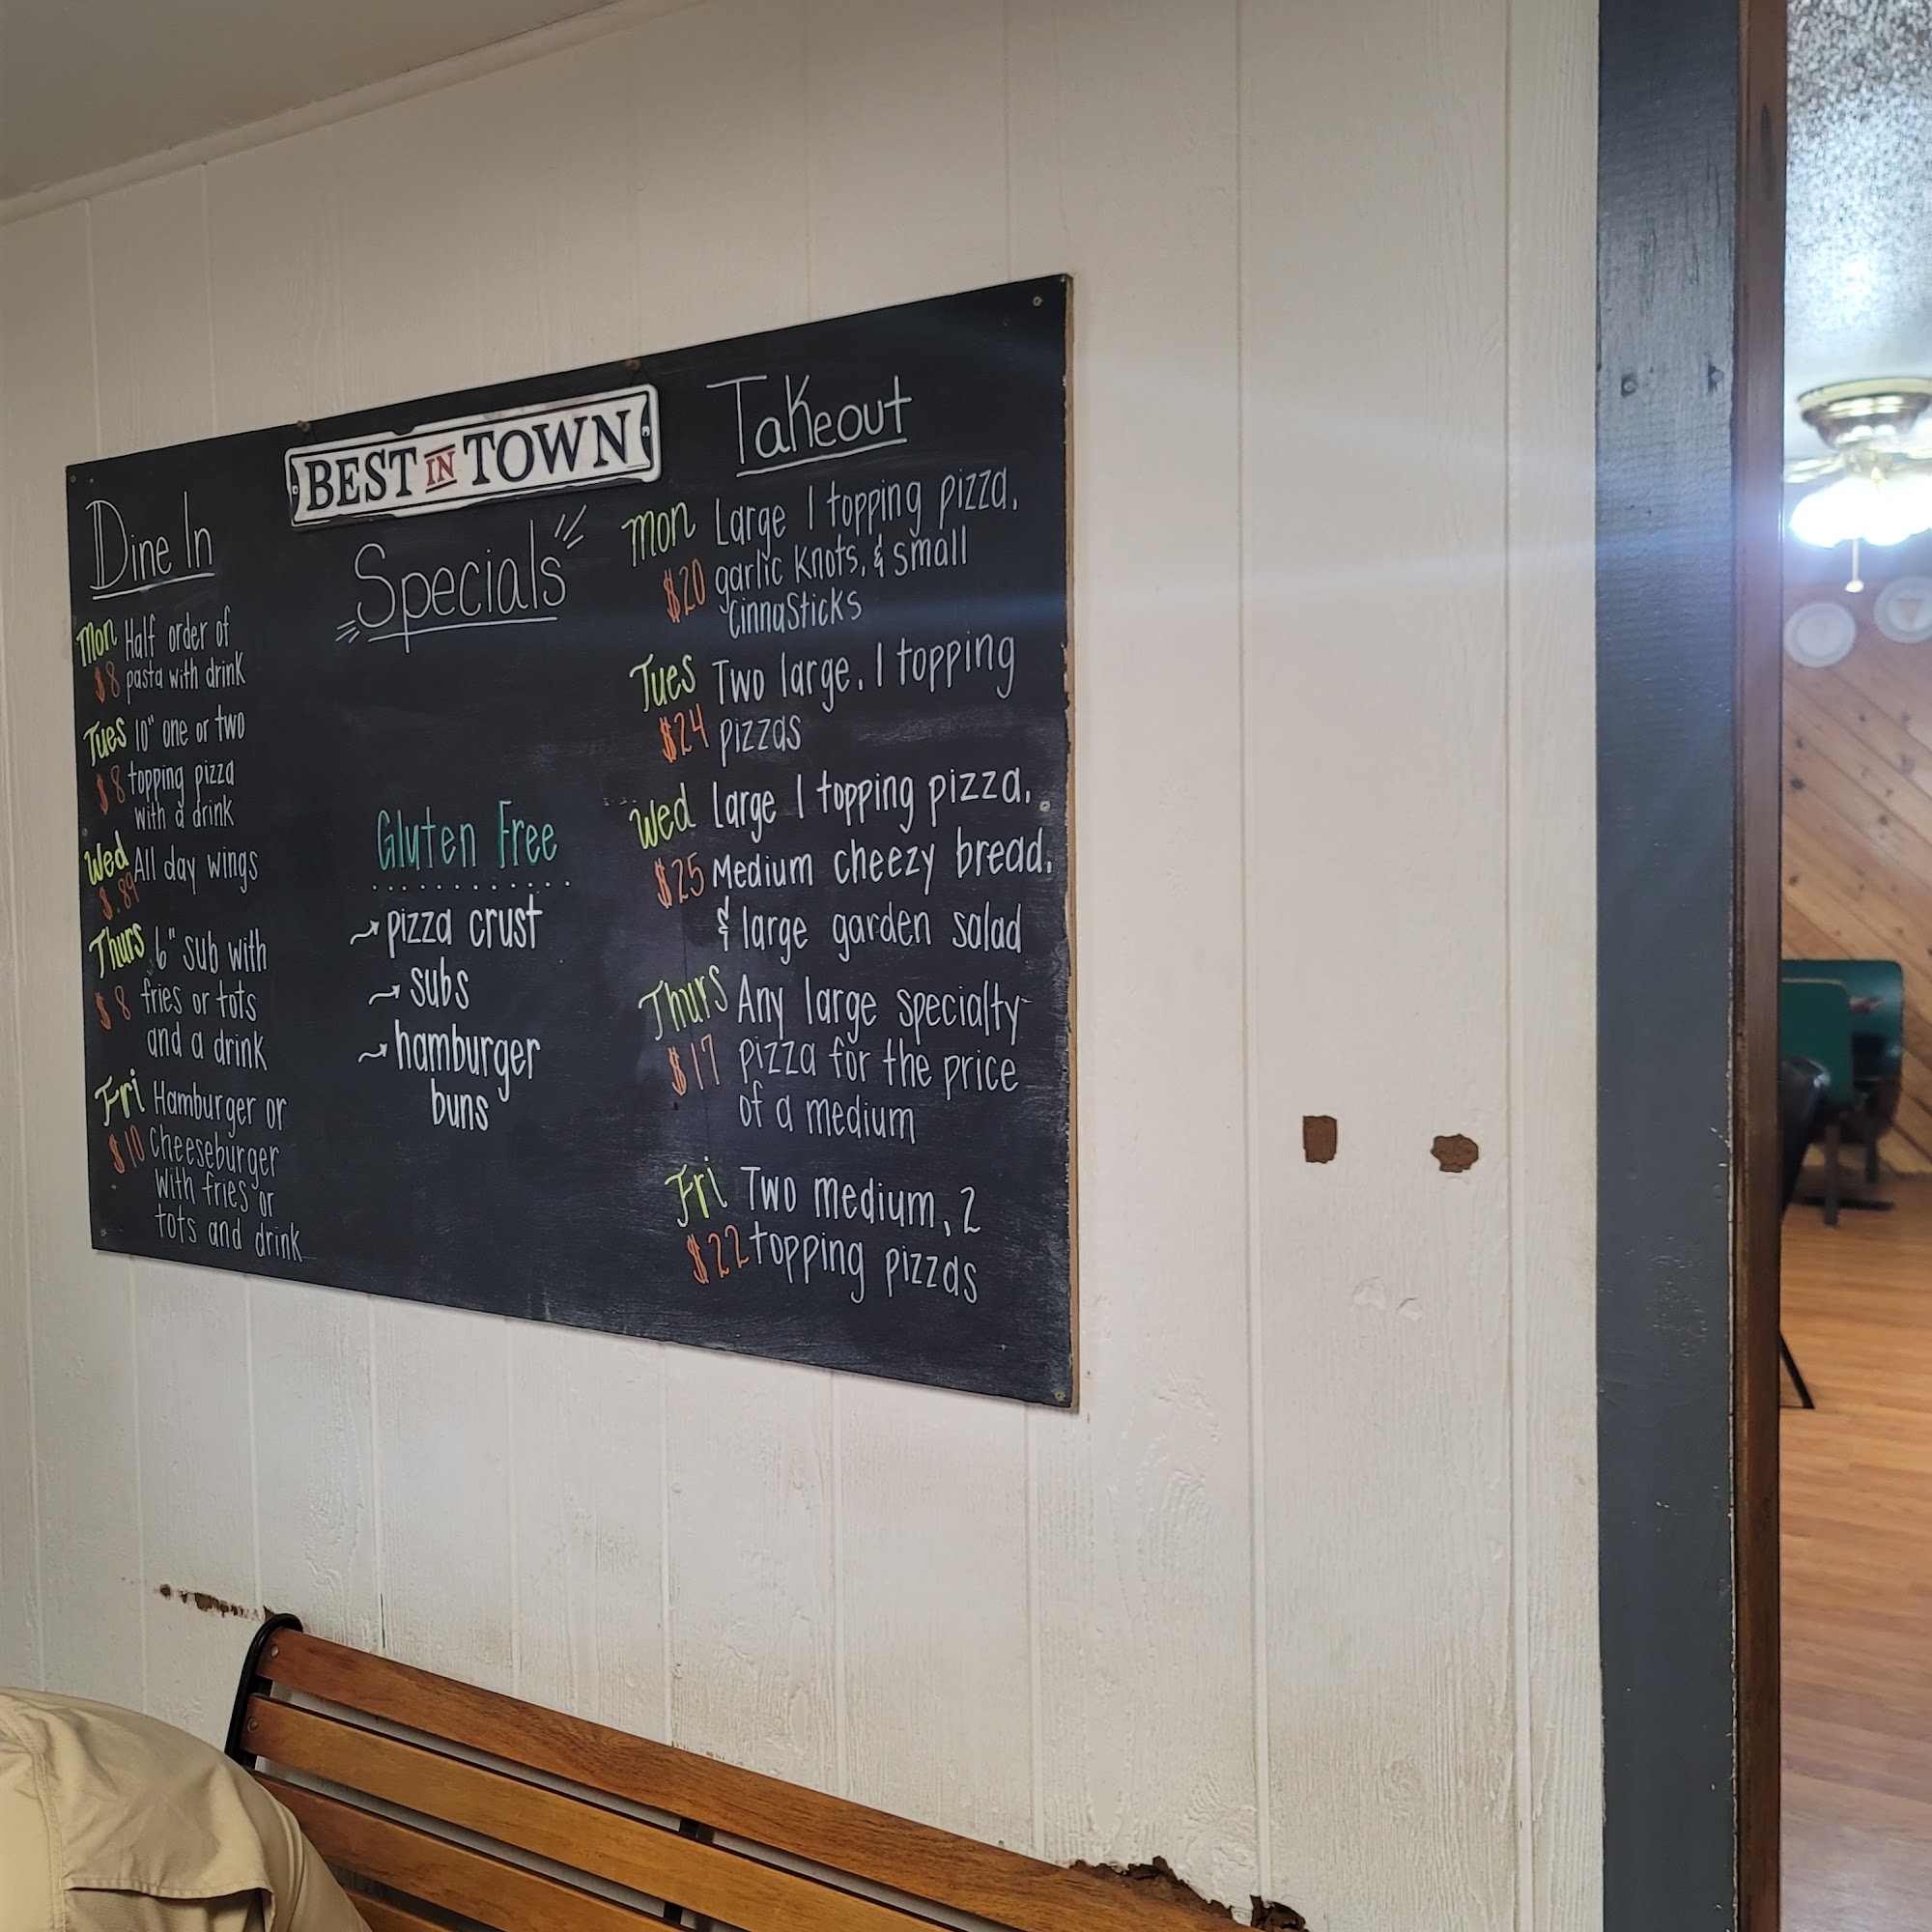 BEST IN TOWN
Specials
Dine In
Mon Half order of
$8 pasta with drink
Tues 10" one or two
$8 topping pizza
with a drink
Wed All day wings
$.89
Thurs 6" sub with
$8 fries or tots
and a drink
Fri Hamburger or
$10 Cheeseburger
with fries or
tots and drink
Gluten Free
pizza crust
subs
hamburger
buns
Takeout
Mon Large 1 topping pizza,
$20 garlic knots, & small
cinnasticks
Tues Two large, 1 topping
$24 pizzas
Wed Large 1 topping pizza,
$25 Medium cheezy bread,
& large garden salad
Thurs Any large specialty
$17 pizza for the price
of a medium
Fri Two medium, 2
$22 topping pizzas